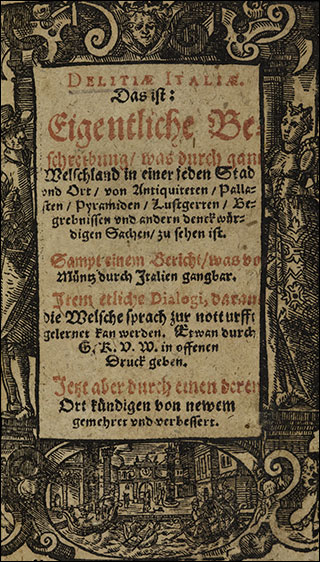 DELITIÆ ITALIÆ.
Das ist:
Eigentliche Be-
schreibung/ was durch gan
Welschland in einer jeden Stad
vnd Ort/ von Antiquiteten/ Palla-
sten/ Pyramiden/ Lustgerten/ Be-
grebnissen vnd andern denckwür-
digen Sachen/ zu sehen ist.
Sampt einem Bericht/ was vo
Müntz durch Italien gangbar.
Item etliche Dialogi, daraus
die Welsche sprach zur notturfft
gelernet kan werden. Etwan durch
G. K. V. W. in offenen
Druck geben.
Jetzt aber durch einen deren
Ort kündigen von newem
gemehret vnd verbessert.